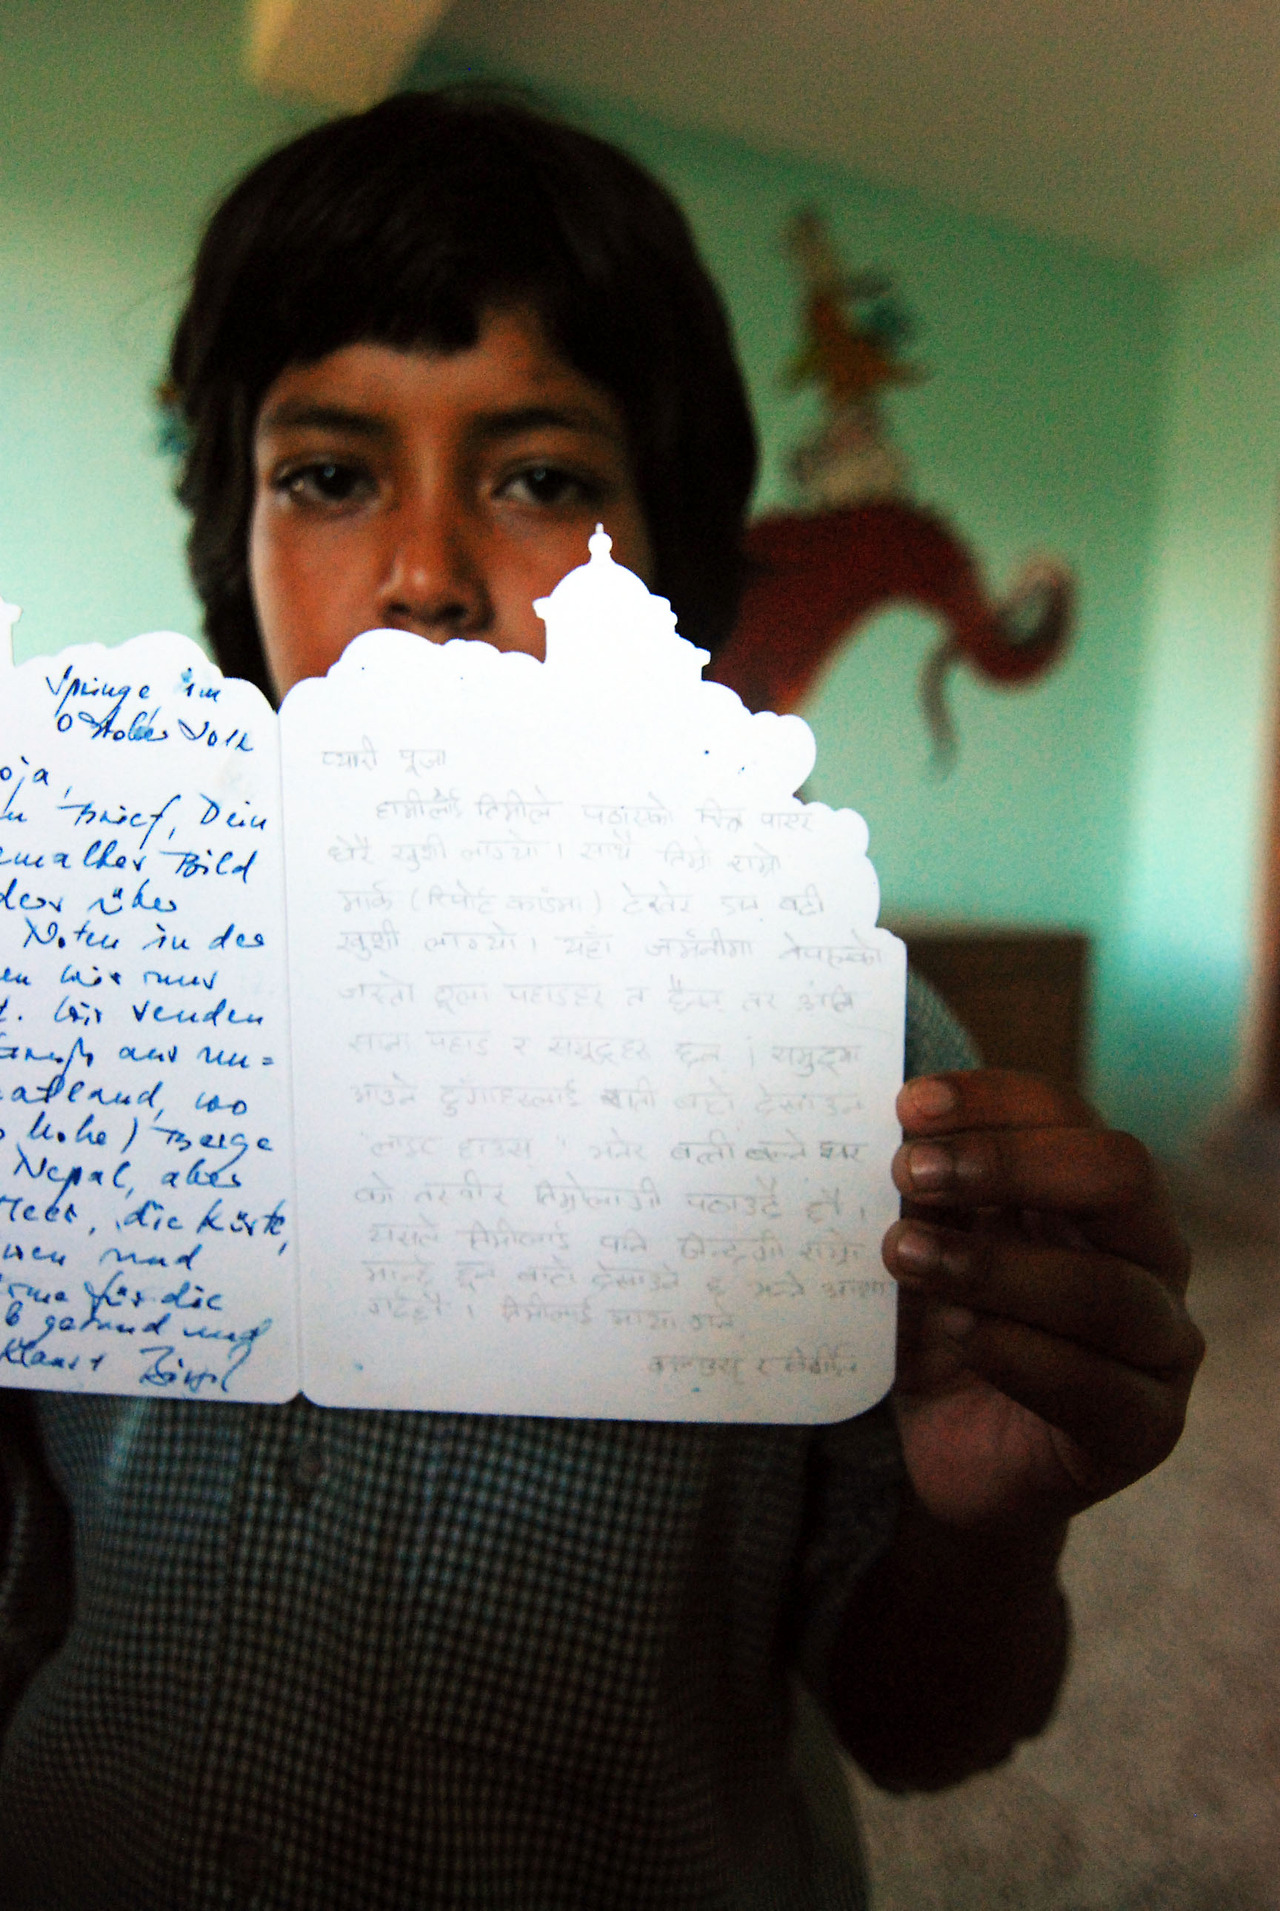 Springe im
Oktober 2012
oja,
Brief, Dein
emaltes Bild
ders über
Noten in der
en wir nur
t. Wir senden
Gruß aus un=
atland, wo
hohe) Berge
Nepal, aber
Meer, die Küste,
und
rme für die
b gesund und
Klaus + Birgit
प्यारी पूजा
हामीलाई तिमीले पठाएको चित्र पाएर
धेरै खुशी लाग्यो। साथै तिम्रो राम्रो
मार्क (रिपोर्ट कार्डमा) देखेर झन् बढी
खुशी लाग्यो। यहाँ जर्मनीमा नेपालको
जस्तो ठूला पहाडहरु त छैनन् तर अलि
साना पहाड र समुद्रहरु छन्। समुद्रमा
आउने डुँगाहरुलाई बाटो देखाउन
"लाइट हाउस" भनेर बत्ती बल्ने घर
को तस्वीर तिम्रोलागी पठाउदै छौं।
यसले तिमीलाई पनि जिन्दगी राम्रो
मान्छे हुन बाटो देखाउने छ भन्ने आशा
गर्दछौं। तिमीलाई माया गर्ने